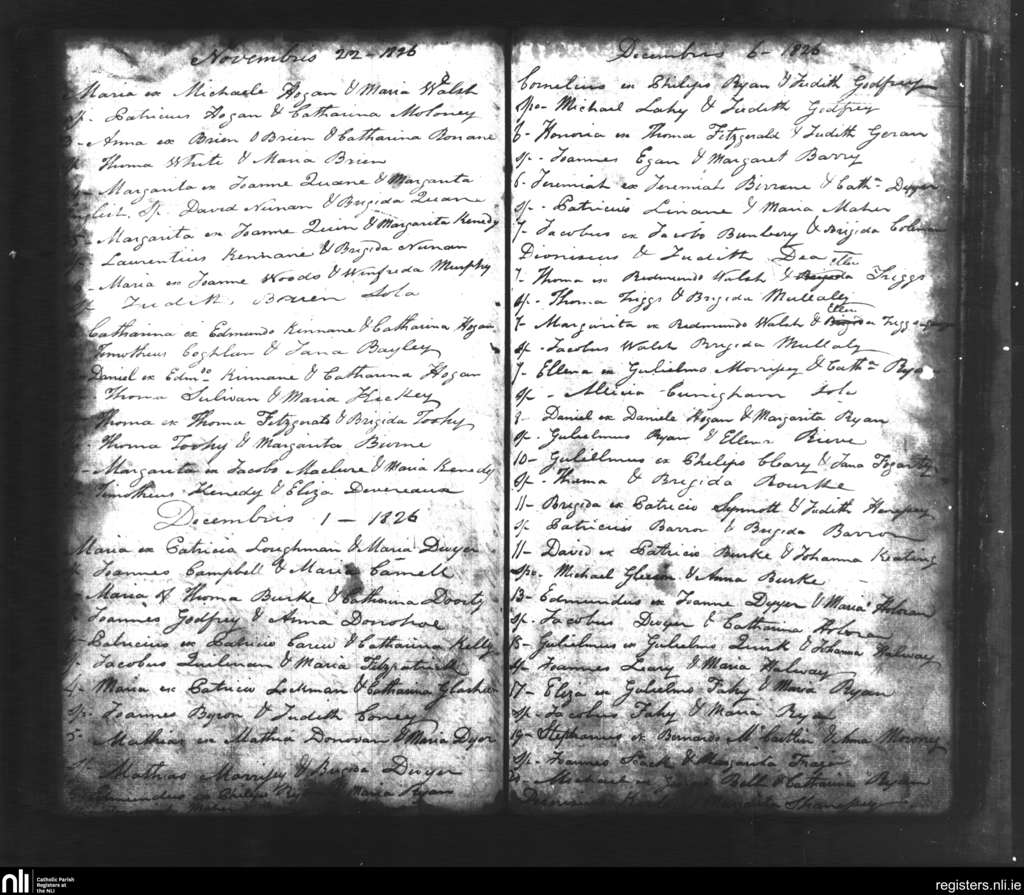 Novembris 22 - 1826
Maria ex Michaele Hogan & Maria Walsh
sp. Patricius Hogan & Catharina Moloney
Anna ex Brien O Brien & Catharina Ronane
Thoma White & Maria Brien
Margarita ex Joanne Quane & Margarita
English. Sp. David Nunan & Brigida Quane
Margarita ex Joanne Quin & Margarita Kenedy
Laurentius Kennane & Brigida Nunan
Maria ex Joanne Woods & Winfreda Murphy
sp. Judith Brien Sola
Catharina ex Edmundo Kinnane & Catharina Hogan
Timotheus Coghlan & Jana Bayley
Daniel ex Edmdo Kinnane & Catharina Hogan
Thoma Sulivan & Maria Hickey
Thoma ex Thoma Fitzgerald & Brigida Toohy
Thoma Toohy & Margarita Burne
Margarita ex Jacobo Maclure & Maria Kenedy
Timotheus Kenedy & Eliza Devereaux
Decembris 1 - 1826
Maria ex Patricio Loughman & Maria Dwyer
Joannes Campbell & Maria
Maria of Thoma Burke & Catharina
Joannes Godfrey & Anna Donohoe
Patricius ex Patricio Carew & Catharina Kelly
Jacobus Quelman & Maria Fitzpatrick
4- Maria ex Patricio Lockman & Catharina
sp- Joannes Byron & Judith
5- Mathias ex Mathia Donovan & Maria Dyer
Mathias Morrisey & Brigida Dwyer
ex Philipo & Maria Ryan
Decembris 6 - 1826
Cornelius ex Philipo Ryan & Judith Godfrey
spo- Michael Lahy & Judith Godfrey
6- Honoria ex Thoma Fitzgerald & Judith Geran
sp- Joannes Egan & Margaret Barry
6- Jeremiah ex Jeremiah Birrane & Cathn Dwyer
sp- Patricius Linane & Maria Maher
7- Jacobus ex Jacobo Bunbery & Brigida Coleman
Dionisius & Judith Dea
7- Thoma ex Redmundo Walsh & Ellen Triggs
sp- Thoma Triggs & Brigida Mullaly
7- Margarita ex Redmundo Walsh & Ellen Triggs
sp- Jacobus Walsh Brigida Mullaly
7- Ellena ex Gulielmo Morrisey & Cathn Ryan
sp- Allicia Cunigham Sola
Daniel ex Daniele Hogan & Margarita Ryan
sp- Gulielmus Ryan & Ellena
10- Gulielmus ex Philipo Cleary & Jana Fogarty
sp- Thoma & Brigida Rourke
11- Brigida ex Patricio Synnott & Judith
sp Patricius Barron & Brigida Barron
11- David ex Patricio Burke & Johanna Keating
spo- Michael Gleeson & Anna Burke
13- Edmundus ex Joanne Dwyer & Maria Holoran
sp- Jacobus Dwyer & Catharina Holoran
15- Gulielmus ex Gulielmo Quirk & Johanna Halway
sp- Joannes Leary & Maria Halway
17- Eliza ex Gulielmo Fahy & Maria Ryan
sp- Jacobus Fahy & Maria Rya
19- Stephanus ex Bernardo & Anna Moroney
sp- Joannes & Margarita
Michael ex Bolton & Catharina Ryan
nli
Catholic Parish
Registers at
the NLI
registers.nli.ie